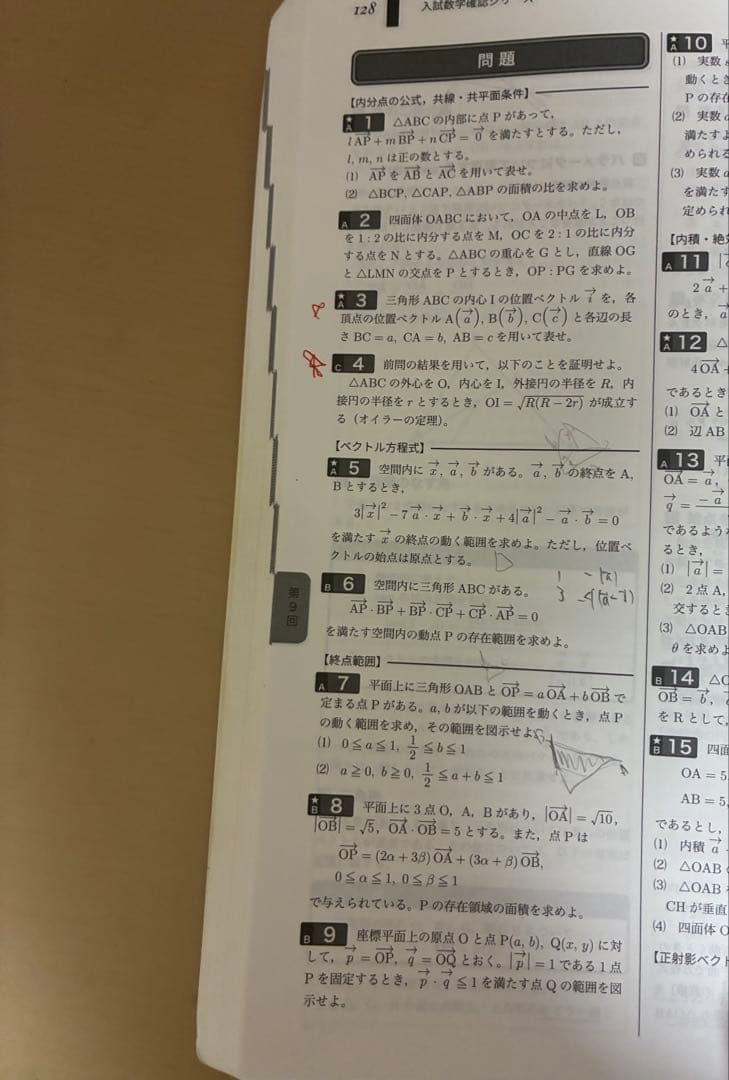 128
入試数学確認シリーズ
問題
【内分点の公式，共線・共平面条件】
★A 1 △ABC の内部に点 P があって，
lAP→+mBP→+nCP→=0→ を満たすとする。ただし，
l, m, n は正の数とする。
(1) AP→ を AB→ と AC→ を用いて表せ。
(2) △BCP, △CAP, △ABP の面積の比を求めよ。
A 2 四面体 OABC において，OA の中点を L，OB
を 1：2 の比に内分する点を M，OC を 2：1 の比に内分
する点を N とする。△ABC の重心を G とし，直線 OG
と △LMN の交点を P とするとき，OP：PG を求めよ。
★A 3 三角形 ABC の内心 I の位置ベクトル i→ を，各
頂点の位置ベクトル A(a→), B(b→), C(c→) と各辺の長
さ BC=a, CA=b, AB=c を用いて表せ。
C 4 前問の結果を用いて，以下のことを証明せよ。
△ABC の外心を O，内心を I，外接円の半径を R，内
接円の半径を r とするとき，OI=√R(R−2r) が成立す
る（オイラーの定理）。
【ベクトル方程式】
★A 5 空間内に x→, a→, b→ がある。a→, b→ の終点を A,
B とするとき，
3|x→|²−7a→・x→+b→・x→+4|a→|²−a→・b→=0
を満たす x→ の終点の動く範囲を求めよ。ただし，位置ベ
クトルの始点は原点とする。
B 6 空間内に三角形 ABC がある。
AP→・BP→+BP→・CP→+CP→・AP→=0
を満たす空間内の動点 P の存在範囲を求めよ。
第9回
【終点範囲】
A 7 平面上に三角形 OAB と OP→=aOA→+bOB→ で
定まる点 P がある。a, b が以下の範囲を動くとき，点 P
の動く範囲を求め，その範囲を図示せよ。
(1) 0≦a≦1, 1/2≦b≦1
(2) a≧0, b≧0, 1/2≦a+b≦1
★B 8 平面上に 3 点 O，A，B があり，|OA→|=√10,
|OB→|=√5, OA→・OB→=5 とする。また，点 P は
OP→=(2α+3β)OA→+(3α+β)OB→,
0≦α≦1, 0≦β≦1
で与えられている。P の存在領域の面積を求めよ。
B 9 座標平面上の原点 O と点 P(a, b), Q(x, y) に対
して，p→=OP→, q→=OQ→ とおく。|p→|=1 である 1 点
P を固定するとき，p→・q→≦1 を満たす点 Q の範囲を図
示せよ。
★A 10
(1) 実数
動くとき
P の存在
(2) 実数
満たす
められる
(3) 実数
を満たす
定められ
【内積・絶対
A 11
2a→+
のとき，
★A 12 △
4OA→+
であるとき
(1) OA→ と
(2) 辺 AB
A 13 平面
OA→=a→,
q→=−a→
であるような
るとき，
(1) |a→|=
(2) 2 点 A,
交するとき
(3) △OAB
θ を求めよ
B 14
OB→=b→,
を R として，
★B 15 四面
OA=5,
AB=5,
であるとし，
(1) 内積 a→
(2) △OAB
(3) △OAB
CH が垂直
(4) 四面体
【正射影ベクト